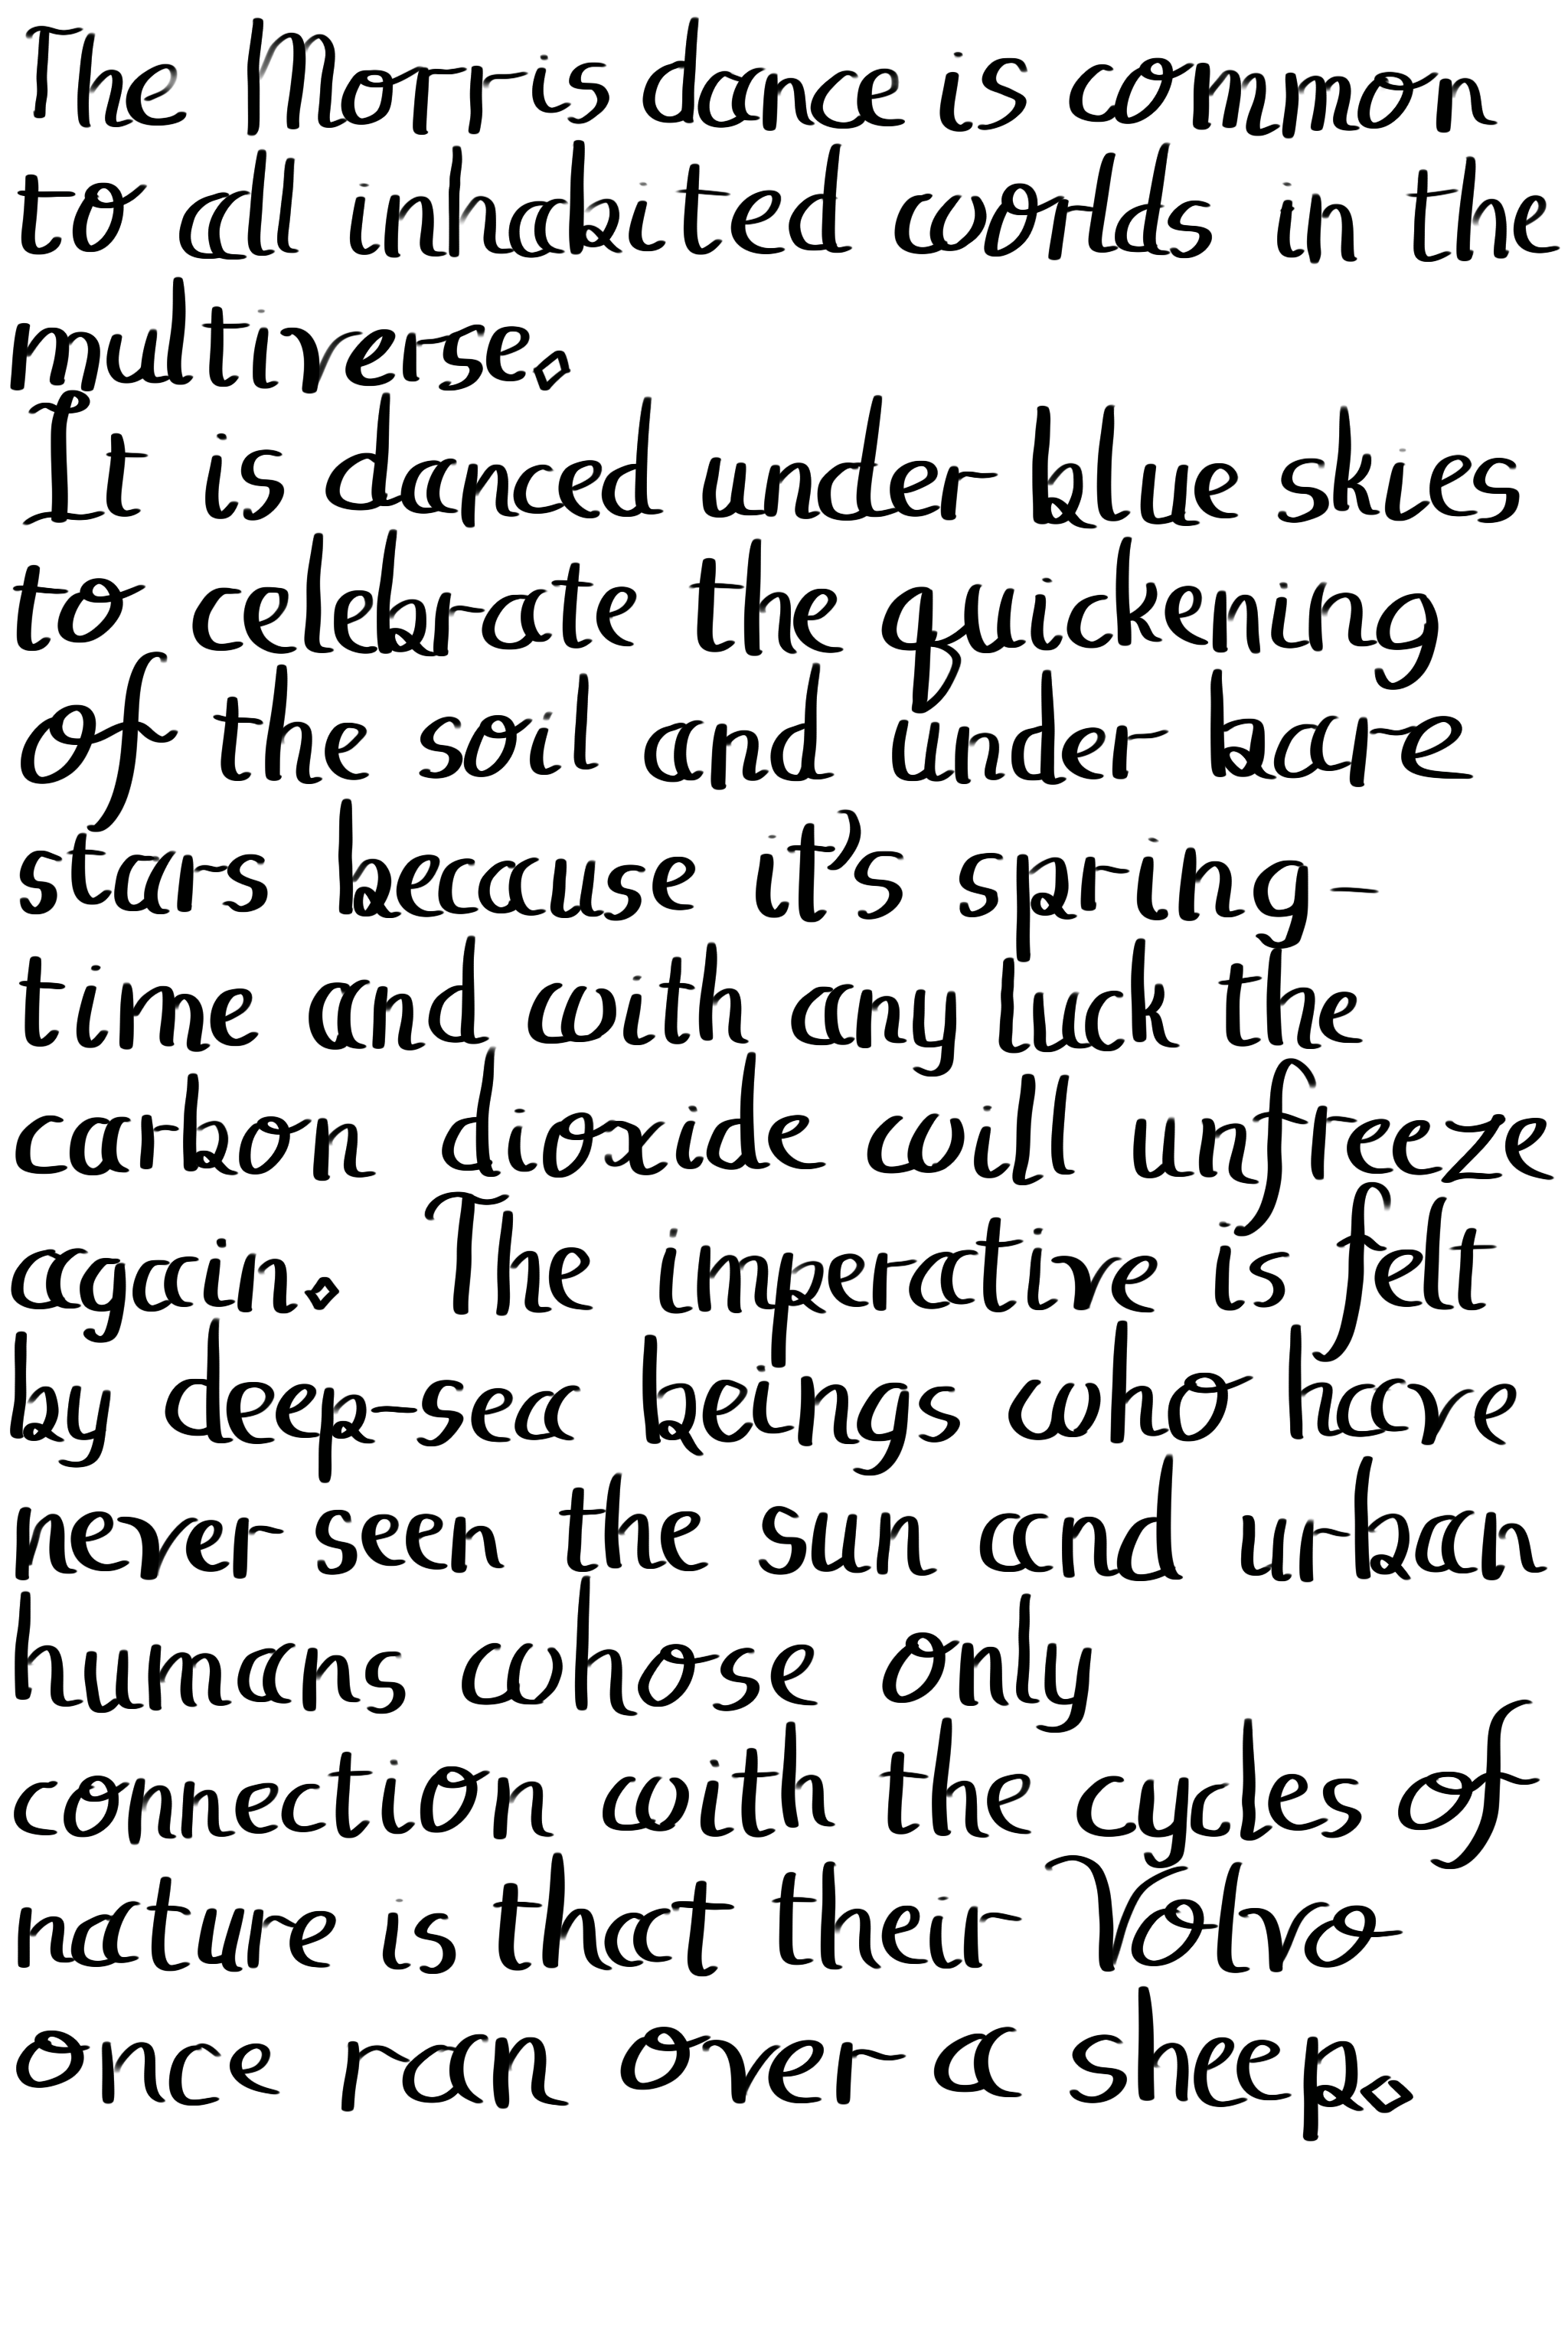 The Morris dance is common
to all inhabited worlds in the
multiverse.
It is danced under blue skies
to celebrate the quickening
of the soil and under bare
stars because it's spring-
time and with any luck the
carbon dioxide will unfreeze
again. The imperative is felt
by deep-sea beings who have
never seen the sun and urban
humans whose only
connection with the cycles of
nature is that their Volvo
once ran over a sheep.